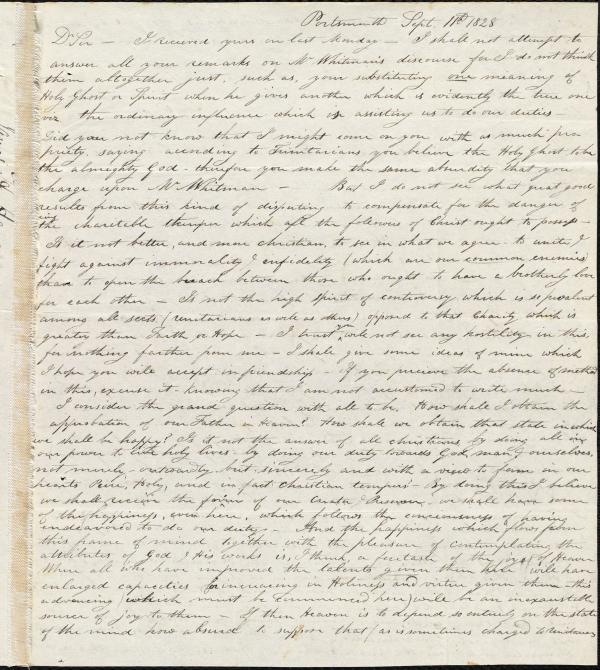 Portsmouth Sept. 11th 1828
Dr Sir — I received yours on last Monday — I shall not attempt to
answer all your remarks on Mr Whitman's discourse for I do not think
them altogether just, such as, your substituting one meaning of
Holy Ghost or Spirit when he gives another which is evidently the true one
viz the ordinary influence which is assisting us to do our duties —
Did you not know that I might come on you with as much pro
priety, saying according to Trinitarians you believe the Holy Ghost to be
the almighty God — therefore you make the same absurdity that you
charge upon Mr Whitman — But I do not see what great good
results from this kind of disputing to compensate for the danger of
the charitable temper which all the followers of Christ ought to possess —
Is it not better, and more christian, to see in what we agree — to unite &
fight against immorality & infidelity (which are our common enemies)
than to open the breach between those who ought to have a brotherly love
for each other — Is not the high spirit of controversy which is so prevalent
among all sects (unitarians as well as others) opposed to that Charity which is
greater than Faith or Hope — I trust you will not see any hostility in this,
for nothing farther from me — I shall give some ideas of mine which
I hope you will accept in friendship — If you perceive the absence of method
in this, excuse it — knowing that I am not accustomed to write much —
I consider the grand question with all to be, How shall I obtain the
approbation of our Father in Heaven? How shall we obtain that state in which
we shall be happy? Is it not the answer of all christians by doing all in
our power to live holy lives — by doing our duty towards God, man & ourselves,
not merely outwardly, but sincerely and with a view to form in our
hearts Pure, Holy, and in fact Christian tempers — By doing this I believe
we shall receive the favor of our Creator & Preserver, we shall have some
of the happiness, even here, which follows the consciousness of having
endeavored to do our duty — And the happiness which flows from
this frame of mind together with the pleasure of contemplating the
attributes of God & His works is, I think, a foretaste of the joys of Heaven
Where all who have improved the talents given them here will have
enlarged capacities for increasing in Holiness and virtue given them — this
advancing (which must be commenced here) will be an inexaustible
source of joy to them — If then Heaven is to depend so entirely on the state
of the mind how absurd to suppose that (as is sometimes charged to